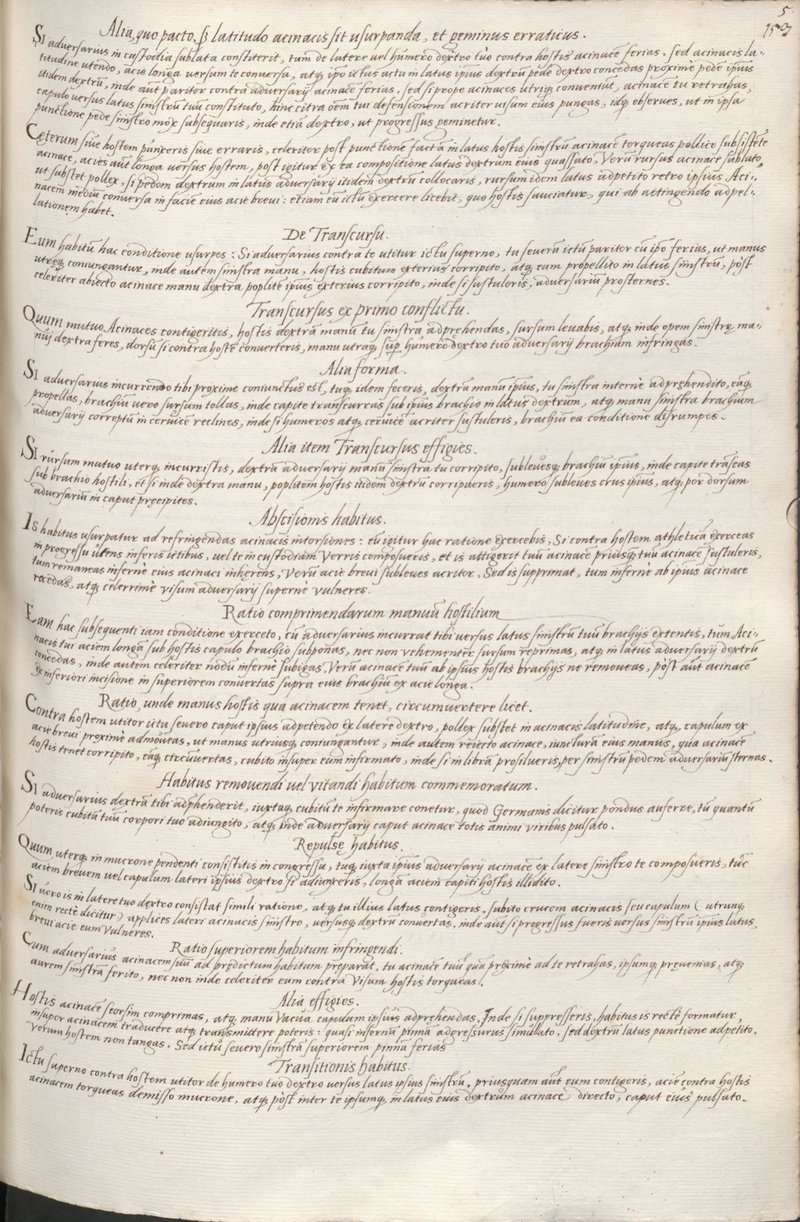 5
153
Alia, quo pacto, si latitudo acinacis sit usurpanda, et geminus erraticus.
Si adversarius in custodia sublata constiterit, tum de latere vel humero dextro tuo contra hostis acinacē ferias. sed acinacis la-
titudine utendo, acie longa versum te conversa, atq; ipso ictus actu in latus ipsius dextrū pede dextro concedas proximè pede ipsius
itidem dextrū, inde aut pariter contra adversarij acinacē ferias. sed si prope acinaces utriq; conveniūt, acinacē tu retrahas,
capulo versus latus sinistrū tuū constituto, hinc citra oēm tui defensionem acriter visum eius pungas, idq; observes, ut in ipsa
punctione pede sinistro mox subsequaris, inde etiā dextro, ut progressus geminetur.
Cęterum sive hostem punxeris sive erraris, celeriter post punctione facta in latus hostis sinistrū acinacē torqueas pollice subsistēte
acinace, acies aūt longa versus hostem, post igitur ex ea compositione latus dextrum eius quassato. Verū rursus acinace sublato,
ut substet pollex. si pedem dextrum in latus adversarij itidem dextrū collocaris, rursum idem latus adpetito retro ipsius Aci-
nacem mediū conversa in facie eius acie brevi: etiam eū ictū exercere licebit, quo hostis sauciatur, qui ab attingendo adpel-
lationem habet.
De Transcursu.
Eum habitū hac conditione usurpes: Si adversarius contra te utitur ictu superno, tu severū ictū pariter cū ipso ferias, ut manus
utręq; coniungantur, inde autem sinistra manu, hostis cubitum exterius corripito, atq; eum propellito in latus sinistrū, post
celeriter abiecto acinace manu dextra poplitē ipsius exterius corripito, inde si sustuleris, adversariū prosternes.
Transcursus ex primo conflictu.
Quum mutuo Acinaces contigeritis, hostis dextrā manū tu sinistra adprehendas, sursum levabis, atq; inde opem sinistrę ma-
nui dextra feres, dorsū si contra hostē converteris, manu utraq; sup humero dextro tuo adversarij brachium infringas.
Alia forma.
Si adversarius incurrendo tibi proxime coniunctus est, tuq; idem feceris, dextrā manū ipsius, tu sinistra internè adprehendito, eāq;
propellas, brachiū vero sursum tollas, inde capite transcurras sub ipsius brachio in latus dextrum, atq; manu sinistra brachium
adversarij correptū in cervicē reclines, inde si humeros atq; cervicē acriter sustuleris, brachiū ea conditione disrumpes.
Alia item Transcursus effigies.
Si rursum mutuo uterq; incurristis, dextrā adversarij manū sinistra tu corripito, sublevesq; brachiū ipsius, inde capite trāseas
sub brachio hostili, et si inde dextra manu, poplitem hostis itidem dextrū corripueris, humero subleves crus ipsius, atq; per dorsum
adversariū in caput pręcipites.
Abscisionis habitus.
Is habitus usurpatur ad refringendas acinacis intorsiones: eū igitur hac ratione exercebis, Si contra hostem athleticā exerceas
in progressu utens inferis ictibus, vel te in custodiam Verris composueris, et is attigerit tuū acinacē priusq; tuū acinacē sustuleris,
tum remaneas infernè eius acinaci inhęrens, Verū acie brevi subleves acriter. Sed is supprimat, tum infernè ab ipsius acinace
recedas, atq; celerrimè visum adversarij supernè vulneres.
Ratio comprimendarum manuū hostilium
Eam hac subsequenti iam conditione exerceto, cū adversarius incurrat tibi versus latus sinistrū tuū brachijs extentis, tum Aci-
nacis tui aciem longā sub hostis capulo brachio subponas, nec non vehementer sursum reprimas, atq; in latus adversarij dextrū
concedas, inde autem celeriter nodū infernè subigas, Verū acinacē tuū ab ipsius hostis brachijs ne removeas, post aut acinacē
ex inferiori incisione in superiorem convertas supra eius brachiū ex acie longa.
Ratio, unde manus hostis qua acinacem tenet, circumvertere licet.
Contra hostem utitor ictu severo caput ipsius adpetendo ex latere dextro, pollex substet in acinacis latitudine, atq; capulum ex
acie brevi proximè admoveas, ut manus utriusq; coniungantur, inde autem reiecto acinace, iuncturā eius manus, qua acinacē
hostis tenet corripito, eāq; circūvertas, cubito insuper eum infirmato, inde si in librā prosilueris, per sinistrū pedem adversariū sternas.
Habitus removendi vel vitandi habitum commemoratum.
Si adversarius dextrā tibi adphenderit, iuxtaq; cubitū te infirmare conetur, quod Germanis dicitur pondus auferre, tū quantū
poteris cubitū tuū corpori tuo adiungito, atq; inde adversarij caput acinace totis animi viribus pulsato.
Repulsę habitus.
Quum uterq; in mucrone pendenti consistitis in congressu, tuq; iuxta ipsius adversarij acinacē ex latere sinistro te composueris, tūc
aciem brevem vel capulum lateri ipsius dextro si adiunxeris, longā aciem capiti hostis illidito.
Si vero is in latere tuo dextro consistat simili ratione, atq; tu illius latus contigeris, subito crucem acinacis seu capulum (utrunq;
enim rectè dicitur) applices lateri acinacis sinistro, versusq; dextrū convertas, inde aūt si progressus fueris versus sinistrū ipsius latus,
brevi acie eum vulneres.
Ratio superiorem habitum infringendi.
Cum adversarius acinacem suū ad prędictum habitum pręparat, tu acinacē tuū quā proximè ad te retrahas, ipsumq; pręvenias, atq;
aurem sinistrā ferito, nec non inde celeriter eum contra Visum hostis torqueas.
Alia effigies.
Hostis acinacē seorsim comprimas, atq; manu vacua capulum ipsius adprehendas. Inde si suppresseris, habitus is rectè formatur,
insuper acinacem traducere atq; transmittere poteris: quasi infernā pinnā adgressurus simulato. sed dextrū latus punctione adpetito,
verum hostem non tangas. Sed ictu severo sinistrā superiorem pinnā ferias
Transitionis habitus.
Ictu superno contra hostem utitor de humero tuo dextro versus latus ipsius sinistrū, priusquam aut eum contigeris, acie contra hostis
acinacem torqueas demisso mucrone, atq; post inter te ipsumq; in latus eius dextrum acinace directo, caput eius pulsato.